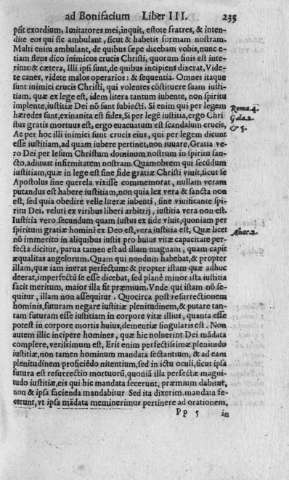 ad Bonifacium Liber III. 235
psit exordium. Imitatores mei, inquit, estote fratres, & inten-
dite eos qui sic ambulant, sicut & habetis formam nostram.
Multi enim ambulant, de quibus sæpe dicebam vobis, nunc e-
tiam flens dico inimicos crucis Christi, quorum finis est inte-
ritus: & cætera. Illi ipsi sunt, de quibus incipiens dixerat, Vide-
te canes, videte malos operarios: & sequentia. Omnes itaque
sunt inimici crucis Christi, qui volentes constituere suam iusti-
tiam, quæ ex lege est, idem litera tantum iubente, non spiritu
implente, iustitiæ Dei nō sunt subiecti. Si enim qui per legem
hæredes sunt, exinanita est fides, Si per legē iustitia, ergo Chri-
stus gratis mortuus est, ergo evacuatum est scandalum crucis,
Ac per hoc illi inimici sunt crucis eius, qui per legem dicunt
esse iustitiam, ad quam iubere pertinet, non iuvare, Gratia ve-
ro Dei per Iesum Christum dominum nostrum in spiritu san-
cto, adiuvat infirmitatem nostram. Quamobrem qui secūdum
iustitiam, quæ in lege est sine fide gratiæ Christi vivit, sicut se
Apostolus sine querela vixisse commemorat, nullam veram
putandus est habere iustitiam, non quia lex vera & sancta non
est, sed quia obedire velle literæ iubenti, sine vivificante spi-
ritu Dei, veluti ex viribus liberi arbitrij, iustitia vera non est.
Iustitia vero secundum quam iustus ex fide vivit, quoniam per
spiritum gratiæ homini ex Deo est, vera iustitia est, Quæ licet
nō immerito in aliquibus iustis pro huius vitæ capacitate per-
fecta dicitur, parva tamen est ad illam magnam, quam capit
æqualitas angelorum. Quam qui nondum habebat, & propter
illam, quæ iam inerat perfectum: & propter istam quæ adhuc
deerat, imperfectū se esse dicebat, sed planè minor ista iustitia
facit meritum, maior illa fit præmium. Unde qui istam nō se-
quitur, illam non assequitur? Quocirca post resurrectionem
hominis, futuram negare iustitiæ plenitudinem, & putare tan-
tam futuram esse iustitiam in corpore vitæ illius, quanta esse
potest in corpore mortis huius, dementiæ singularis est. Non
autem illic incipere homines, quæ hic noluerint Dei mādata
complere, verissimum est, Erit enim perfectissimæ plenitudo
iustitiæ, non tamen hominum mandata sectantium, & ad eam
plenitudinem proficiēdo nitentium, sed in ictu oculi, sicut ipsa
futura est resurrectio mortuorū, quoniā illa perfectæ magni-
tudo iustitiæ, eis qui hic mandata fecerunt, præmium dabitur,
non & ipsa facienda mandabitur Sed ita dixerim. mandata fe-
cerunt, ut ipsa mādata meminerimus pertinere ad orationem,
Pp 5 in
Roma. 4.
Gala. 2.
& 5.